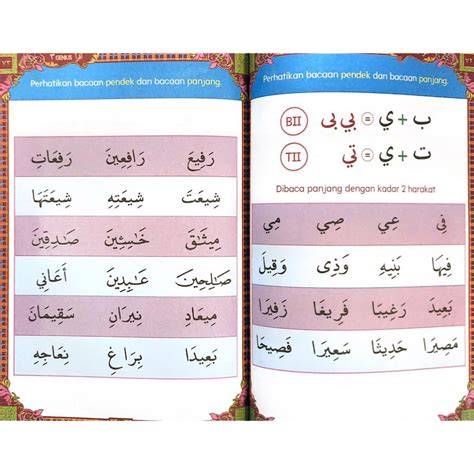 ٧٢
Perhatikan bacaan pendek dan bacaan panjang.
ب + ي = بي بى BII
ت + ي = تي TII
Dibaca panjang dengan kadar 2 harakat
فِى عِي صِي مِي
فِيهَا بَنِيهِ وَذِى وَقِيلَ
بَعِيدَ رَغِيبَا فَرِيغَا زَفِيرَا
مَصِيرَا حَدِيثَا سَعِيرَا فَصِيحَا
٧٣ اقرأ GENIUS ٣
Perhatikan bacaan pendek dan bacaan panjang.
رَفِيعَ رَافِعِينَ رَفِعَاتِ
شِيعَتَ شِيعَتِهِ شِيعَتَهَا
مِيثَٰقَ خَٰسِئِينَ صَٰدِقِينَ
صَٰلِحِينَ عَٰبِدِينَ أَعَانِي
مِيعَادِ نِيرَانِ سَقِيمَانَ
بَعِيدَا بِرَاغِ نِعَاجِهِ